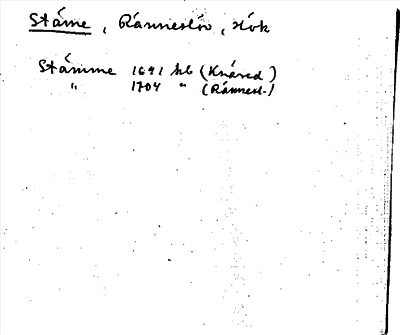 Ståme, Ränneslöv, Hök
Stämme 1641 hb (Knäred)
" 1704 " (Rännesl.)